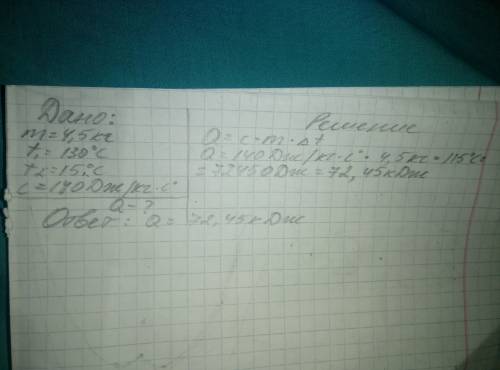 Дано:
m = 4,5 кг
t₁ = 130°C
t₂ = 15°C
c = 140 Дж/кг·c°
Q = ?
Решение
Q = c · m · Δt
Q = 140 Дж/кг·c° · 4,5 кг · 115°C
= 72450 Дж = 72,45 кДж
Ответ: Q = 72,45 кДж